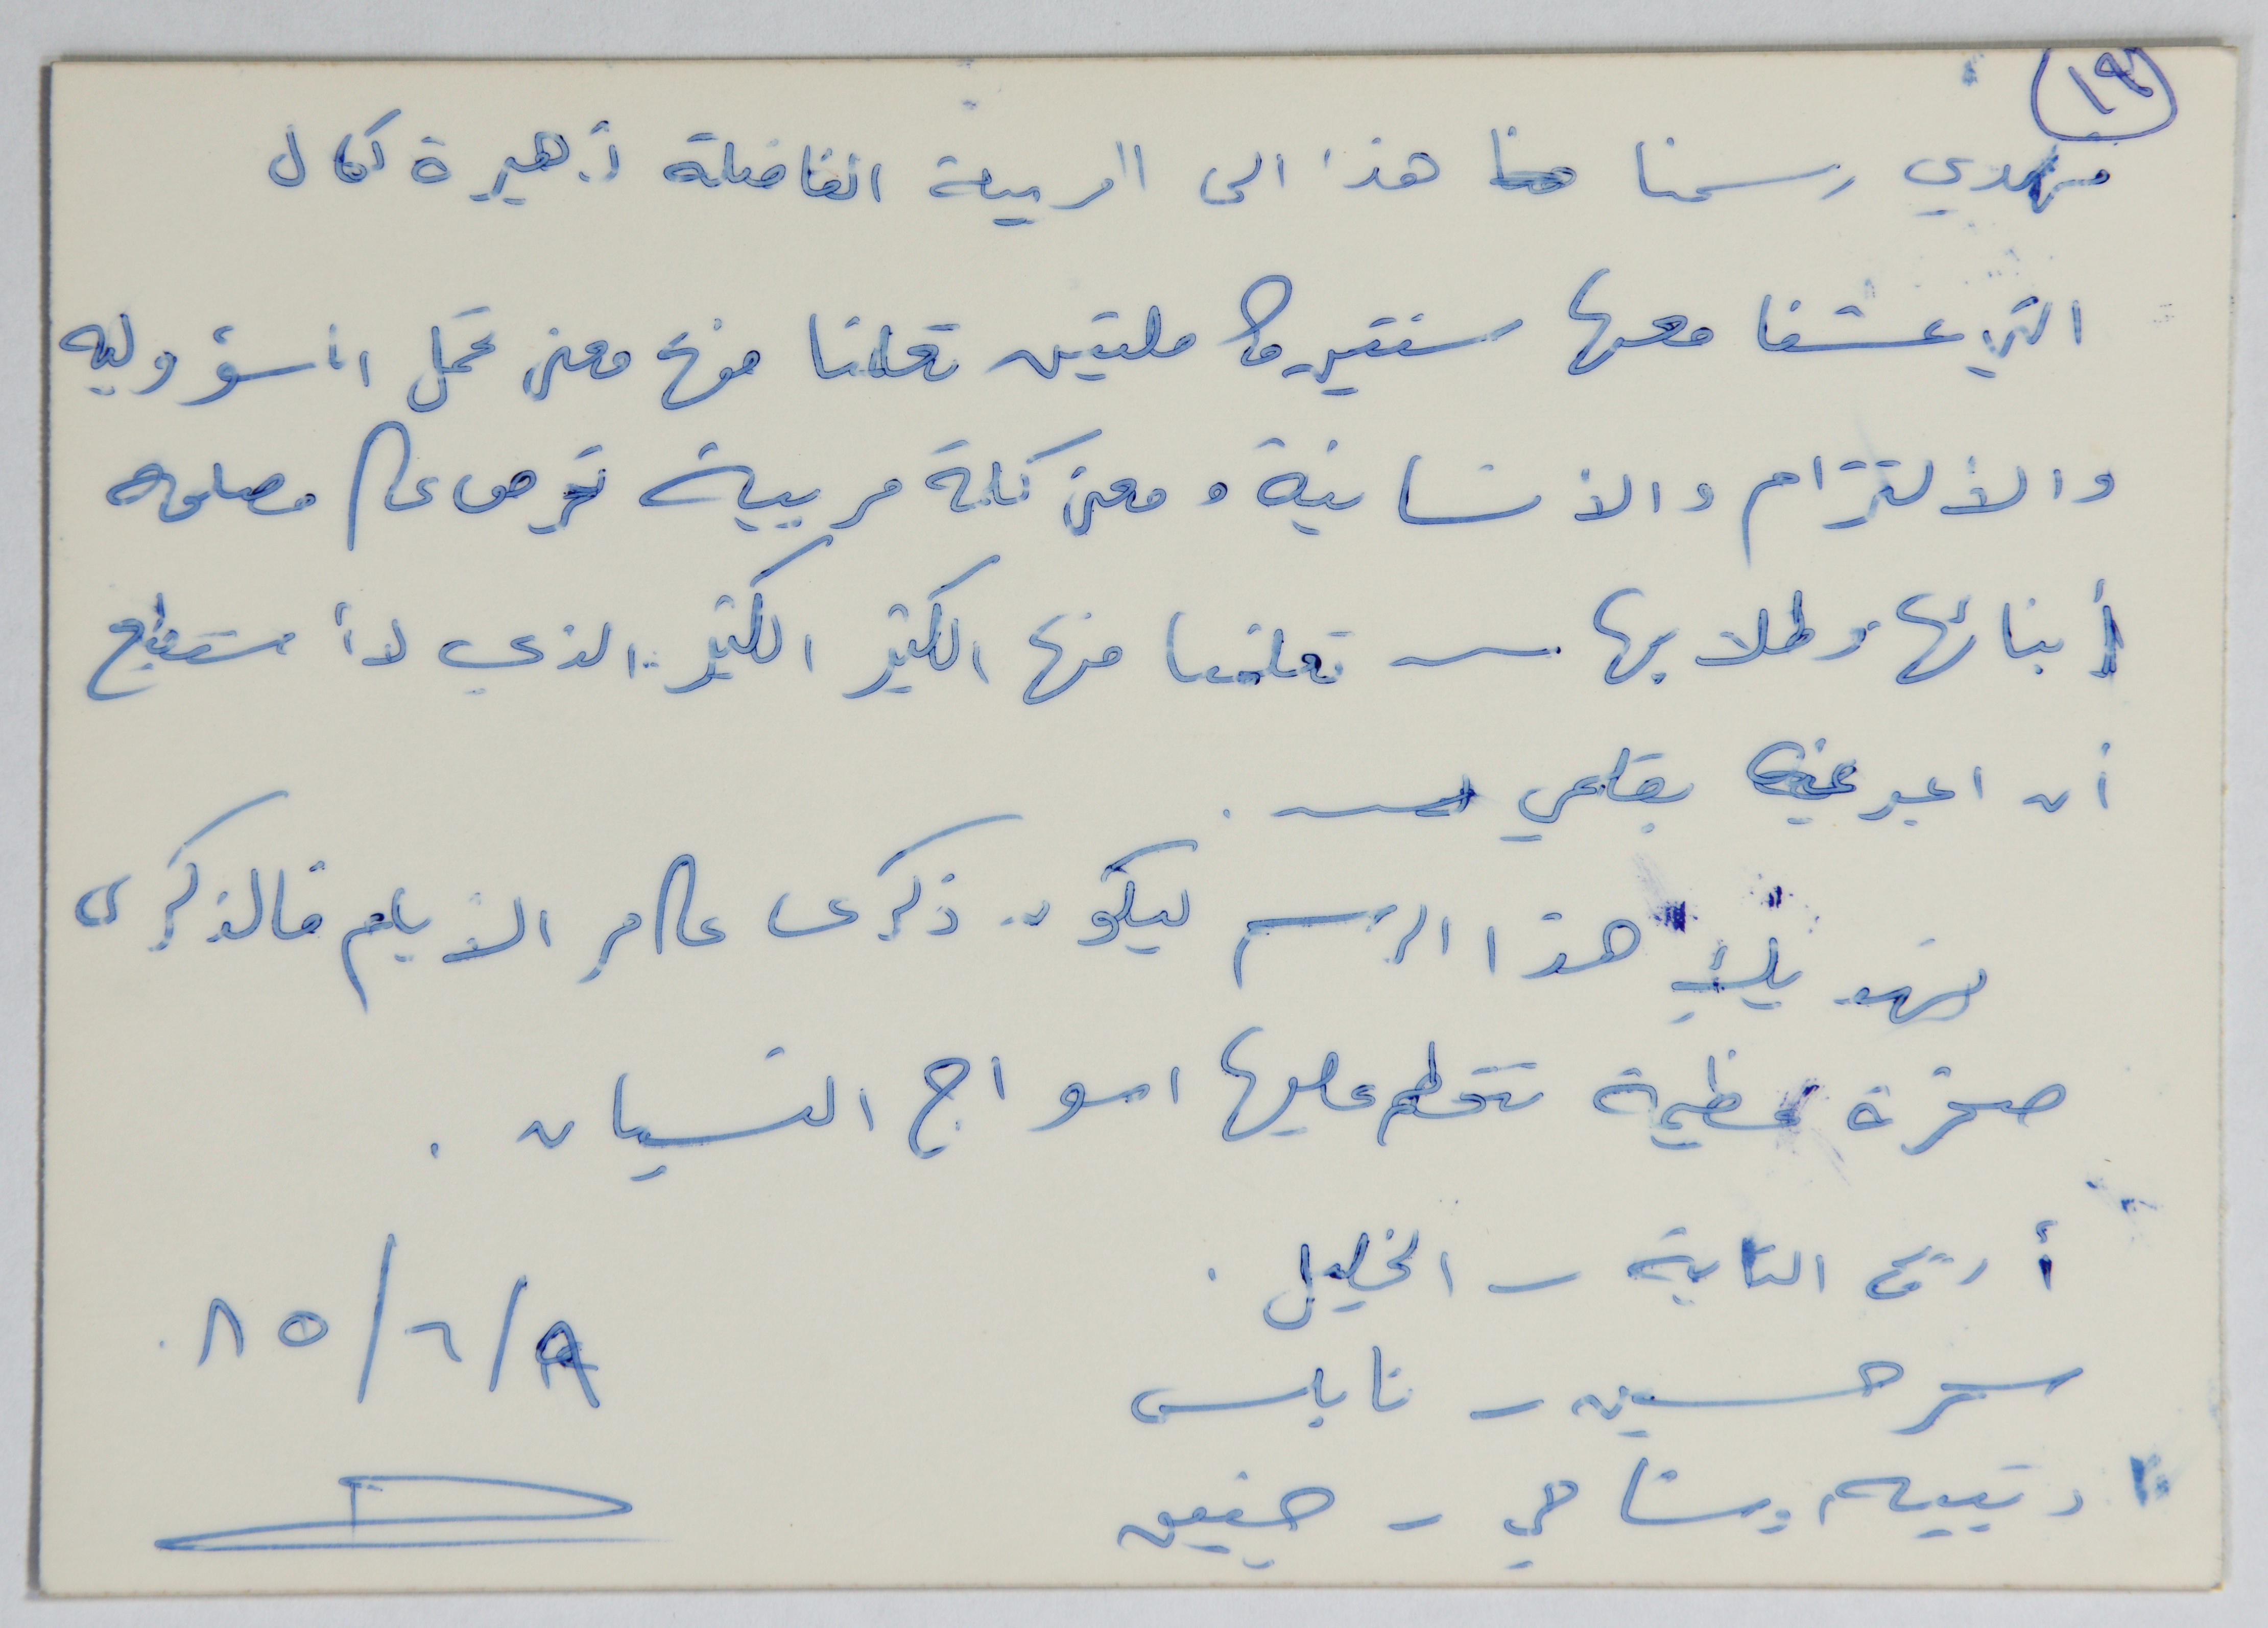 ١٩
نهدي رسمنا هذا الى المربية الفاضلة أ. زهيرة كمال
التي عشنا معها سنتين كاملتين تعلمنا منها معنى تحمل المسؤوليه
والألتزام والانسانية ومعنى كلمة مربية تحرص على مصلحة
أبنائها وطلابها ــ تعلمنا منها الكثير الكثير الذي لا أستطيع
أن اعبر عنه بقلمي ــ .
نهديك هذا الرسم ليكون ذكرى على مر الأيام فالذكرى
صخرة عظيمة تتحطم عليها امواج النسيان .
أريج - الخليل .
سحر حسين - نابلس
جنين
٨٥/٦/٩